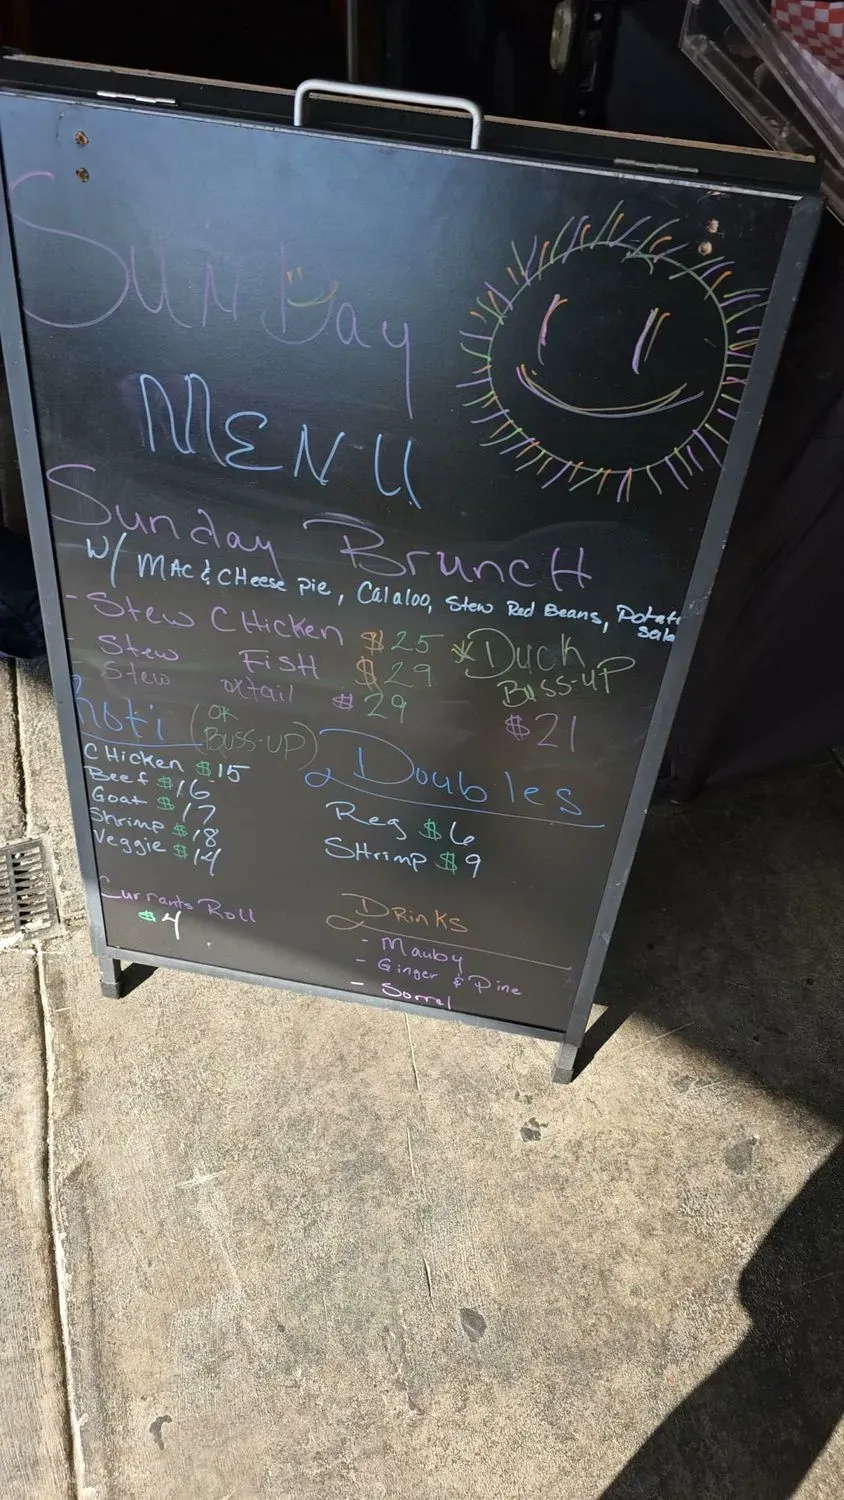 SunDay
MENU
Sunday Brunch
W/ MAC & CHeese pie, Calaloo, Stew Red Beans, Potato
Sala
- Stew CHicken $25
- Stew FisH $29
- Stew oxtail $29
* Duck
Buss-uP
$21
Roti (or Buss-uP)
CHicken $15
Beef $16
Goat $17
Shrimp $18
Veggie $14
Doubles
Reg $6
SHrimp $9
Currants Roll
$4
Drinks
- Mauby
- Ginger & Pine
- Sorrel